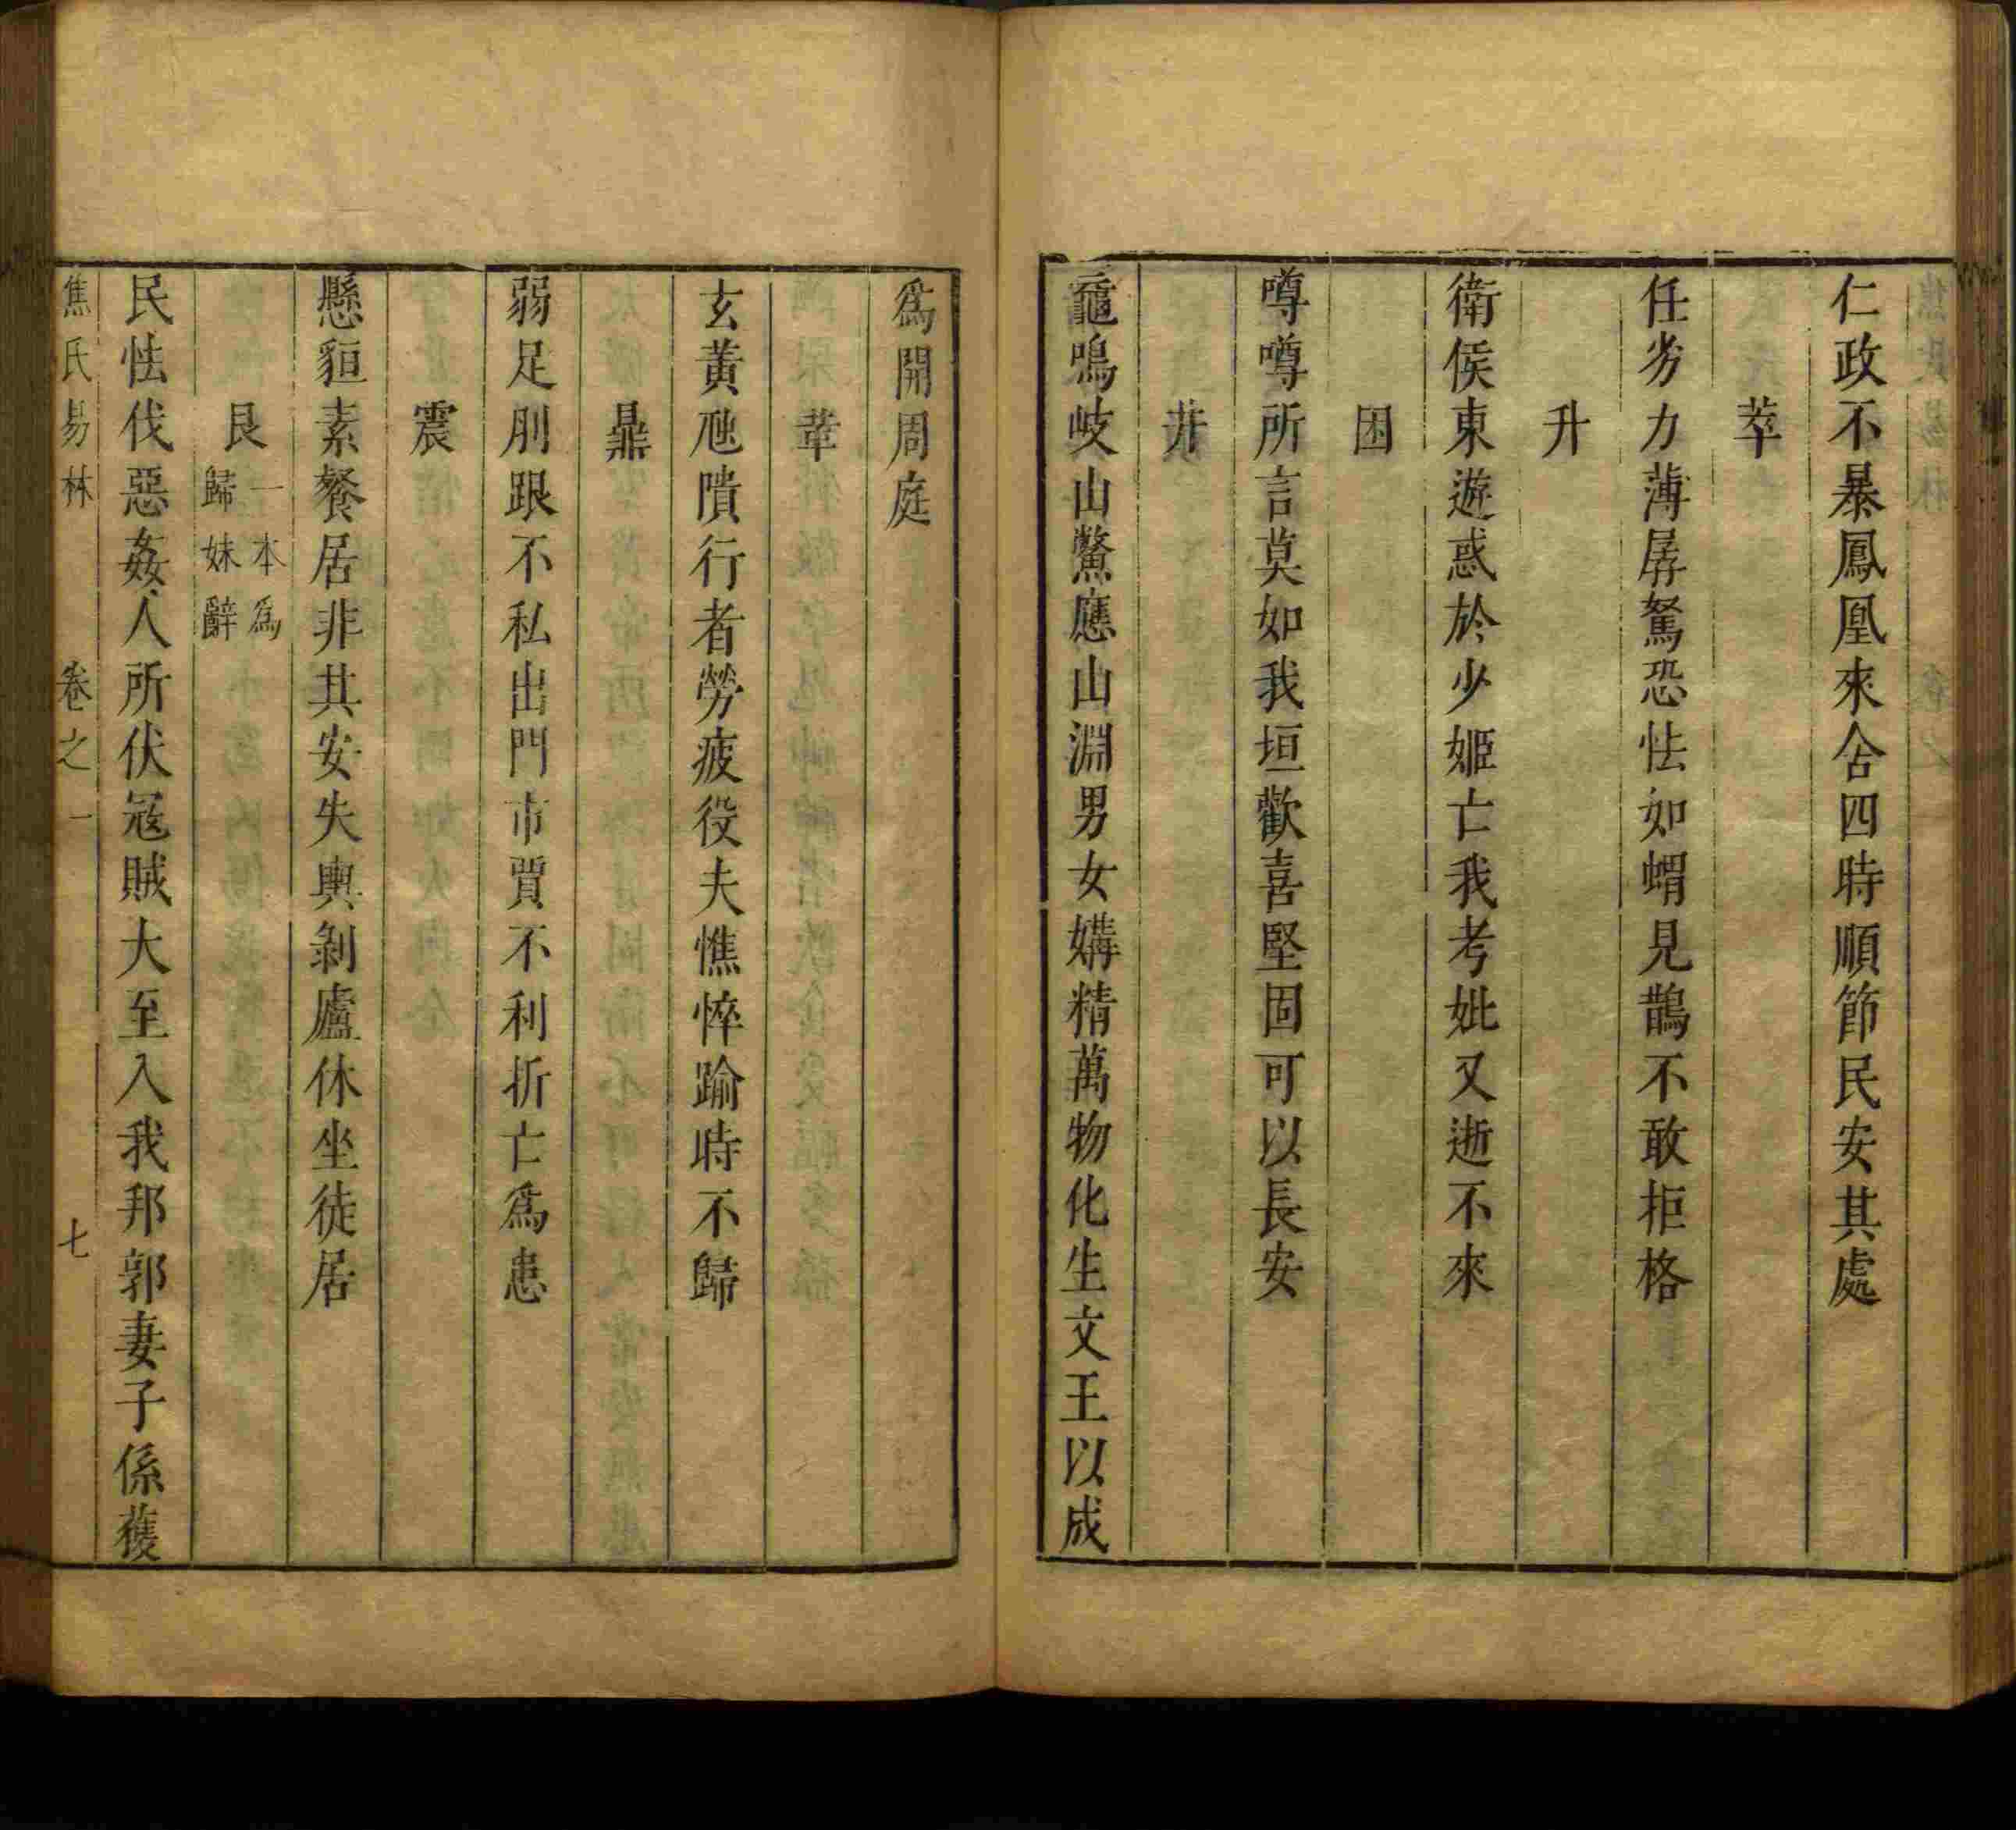 仁政不暴鳳凰來舍四時順節民安其處
萃
任劣力薄孱駑恐怯如蝟見鵲不敢拒格
升
衛侯東遊惑於少姬亡我考妣又逝不來
困
噂噂所言莫如我垣歡喜堅固可以長安
井
黿鳴岐山鱉應山淵男女媾精萬物化生文王以成
爲開周庭
革
玄黃虺隤行者勞疲役夫憔悴踰時不歸
鼎
弱足刖跟不私出門市賈不利折亡爲患
震
懸貆素餐居非其安失輿剝廬休坐徒居
艮
一本爲
歸妹辭
民怯伐惡姦人所伏冦賊大至入我邦郭妻子係獲
焦氏易林 卷之一 七